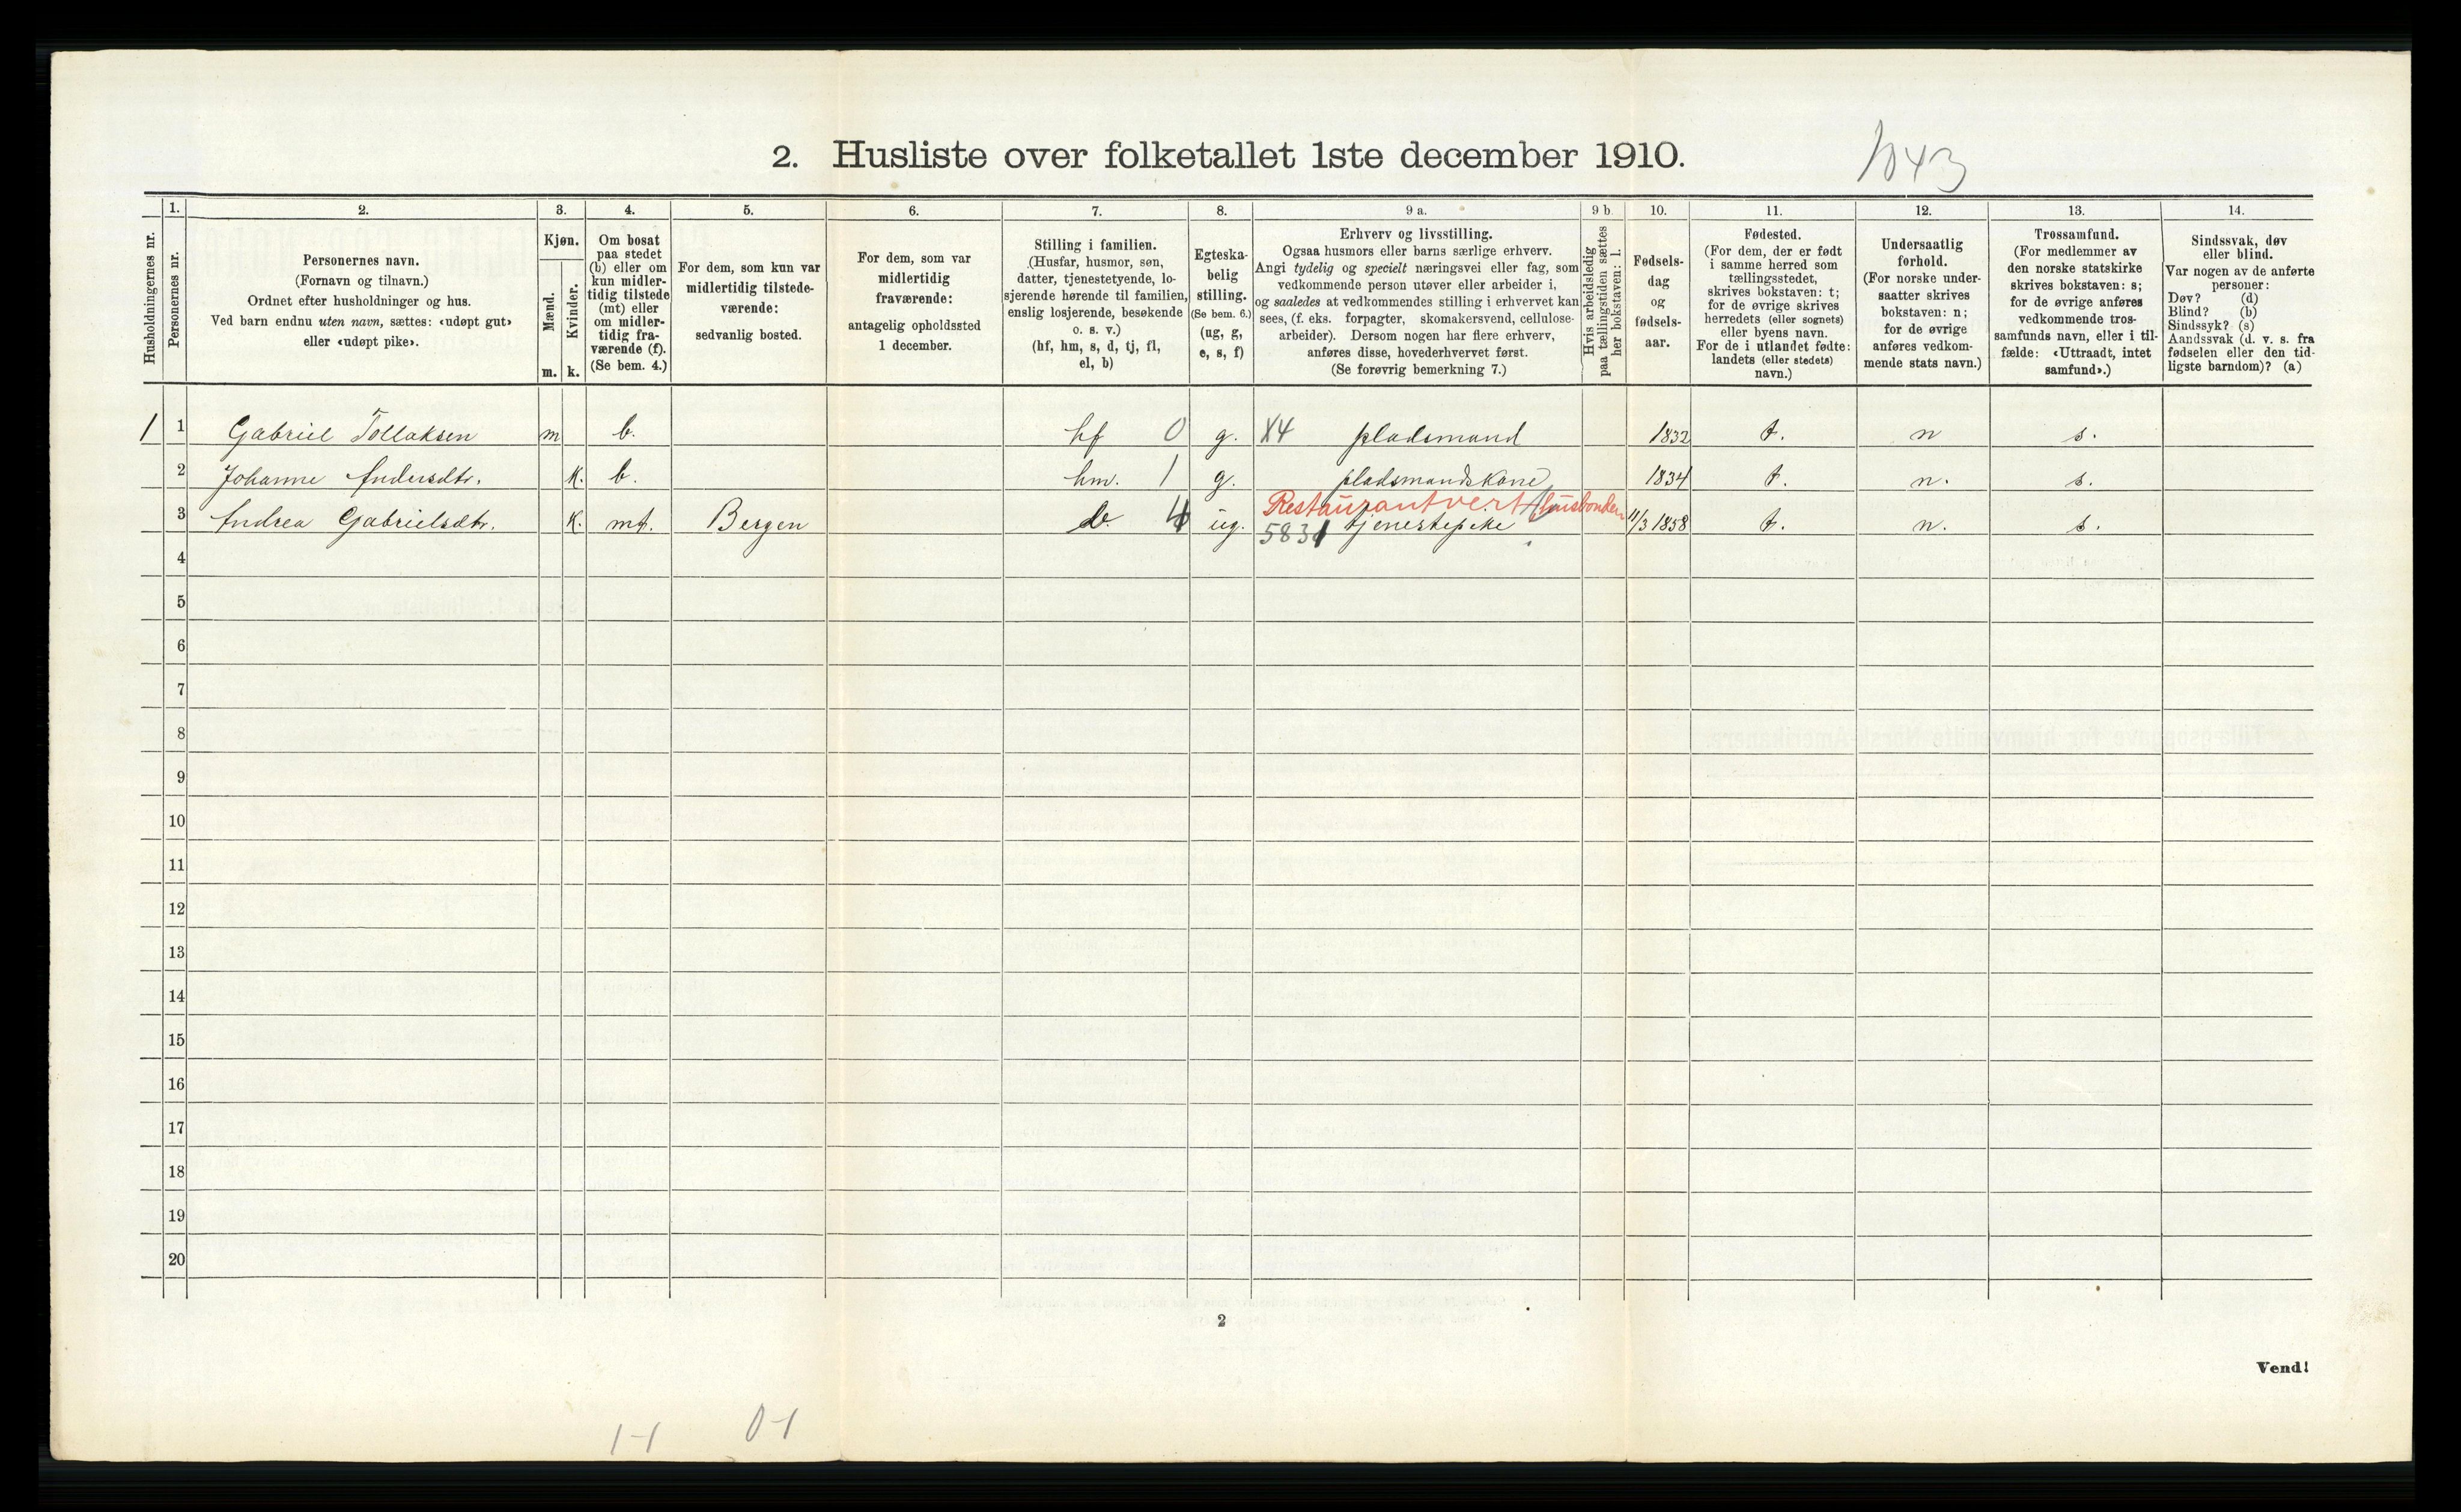 2. Husliste over folketallet 1ste december 1910.
1043
Husholdningernes nr.
1.
Personernes nr.
2.
Personernes navn.
(Fornavn og tilnavn.)
Ordnet efter husholdninger og hus.
Ved barn endnu uten navn, sættes: «udøpt gut»
eller «udøpt pike».
3.
Kjøn.
Mænd.
Kvinder.
m. k.
4.
Om bosat
paa stedet
(b) eller om
kun midler-
tidig tilstede
(mt) eller
om midler-
tidig fra-
værende (f).
(Se bem. 4.)
5.
For dem, som kun var
midlertidig tilstede-
værende:
sedvanlig bosted.
6.
For dem, som var
midlertidig
fraværende:
antagelig opholdssted
1 december.
7.
Stilling i familien.
(Husfar, husmor, søn,
datter, tjenestetyende, lo-
sjerende hørende til familien,
enslig losjerende, besøkende
o. s. v.)
(hf, hm, s, d, tj, fl,
el, b)
8.
Egteska-
belig
stilling.
(Se bem. 6.)
(ug, g,
e, s, f)
9 a.
Erhverv og livsstilling.
Ogsaa husmors eller barns særlige erhverv.
Angi tydelig og specielt næringsvei eller fag, som
vedkommende person utøver eller arbeider i,
og saaledes at vedkommendes stilling i erhvervet kan
sees, (f. eks. forpagter, skomakersvend, cellulose-
arbeider). Dersom nogen har flere erhverv,
anføres disse, hovederhvervet først.
(Se forøvrig bemerkning 7.)
9 b.
Hvis arbeidsledig
paa tællingstiden sættes
her bokstaven: l.
10.
Fødsels-
dag
og
fødsels-
aar.
11.
Fødested.
(For dem, der er født
i samme herred som
tællingsstedet,
skrives bokstaven: t;
for de øvrige skrives
herredets (eller sognets)
eller byens navn.
For de i utlandet fødte:
landets (eller stedets)
navn.)
12.
Undersaatlig
forhold.
(For norske under-
saatter skrives
bokstaven: n;
for de øvrige
anføres vedkom-
mende stats navn.)
13.
Trossamfund.
(For medlemmer av
den norske statskirke
skrives bokstaven: s;
for de øvrige anføres
vedkommende tros-
samfunds navn, eller i til-
fælde: «Uttraadt, intet
samfund».)
14.
Sindssvak, døv
eller blind.
Var nogen av de anførte
personer:
Døv? (d)
Blind? (b)
Sindssyk? (s)
Aandssvak (d. v. s. fra
fødselen eller den tid-
ligste barndom)? (a)
1 1 Gabriel Tollaksen m b. hf 0 g. X4 pladsmand 1832 t. n s.
2 Johanne Andersdtr. k. b. hm. 1 g. pladsmandskone 1834 t. n. s.
Restaurantvert husbonden
3 Andrea Gabrielsdtr. k. mt. Bergen d. 4 ug. 5831 tjenestepike 11/3 1858 t. n. s.
4
5
6
7
8
9
10
11
12
13
14
15
16
17
18
19
20
2
Vend!
1-1 0-1